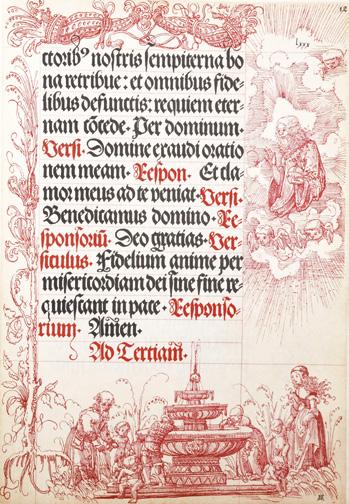 12
lxxx
ctorib9 nostris sempiterna bo
na retribue: et omnibus fide-
libus defunctis: requiem eter-
nam cōcede. Per dominum.
Versi. Domine exaudi oratio
nem meam. Respon. Et cla-
mor meus ad te veniat. Versi.
Benedicamus domino. Re-
sponsoriū. Deo gratias. Ver-
siculus. Fidelium anime per
misericordiam dei sine fine re-
quiescant in pace. Responso-
rium. Amen.
Ad Tertiam.